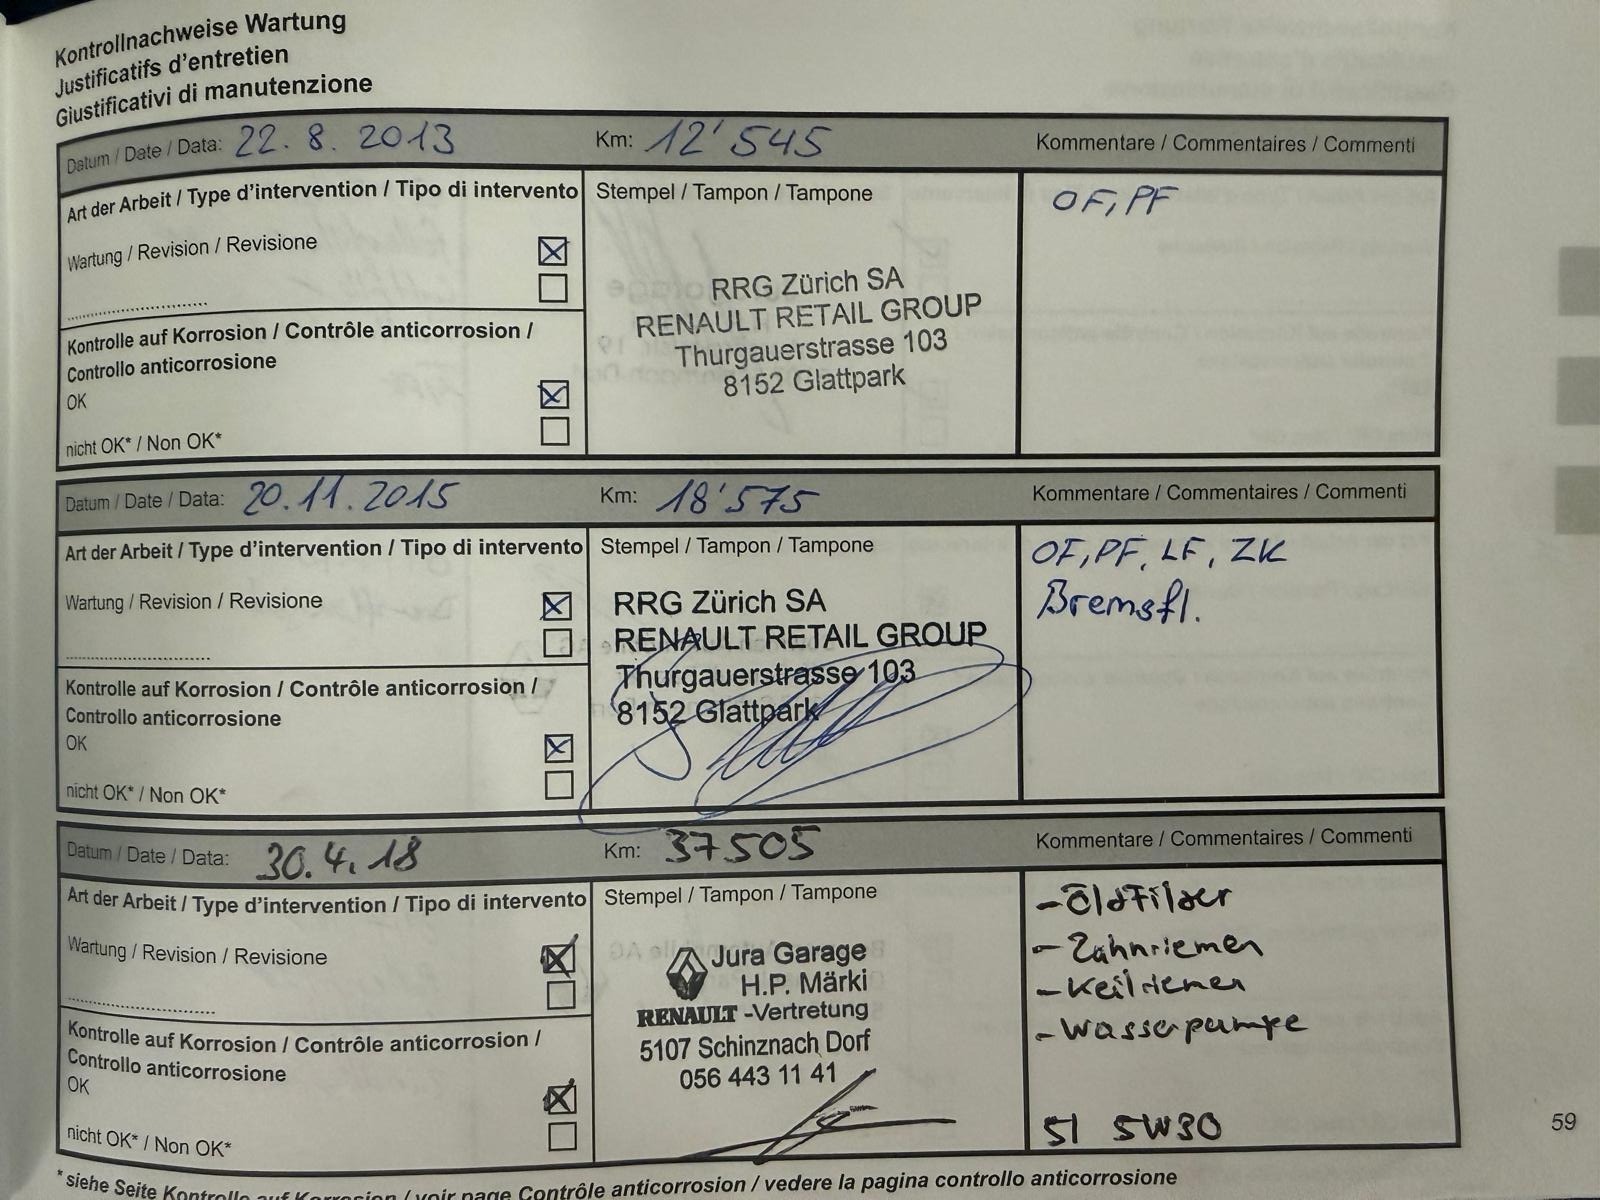 Kontrollnachweise Wartung
Justificatifs d'entretien
Giustificativi di manutenzione
Datum / Date / Data: 22. 8. 2013 Km: 12'545 Kommentare / Commentaires / Commenti
Art der Arbeit / Type d'intervention / Tipo di intervento Stempel / Tampon / Tampone OF, PF
Wartung / Revision / Revisione
RRG Zürich SA
RENAULT RETAIL GROUP
Thurgauerstrasse 103
8152 Glattpark
Kontrolle auf Korrosion / Contrôle anticorrosion /
Controllo anticorrosione
OK
nicht OK* / Non OK*
Datum / Date / Data: 20.11.2015 Km: 18'575 Kommentare / Commentaires / Commenti
Art der Arbeit / Type d'intervention / Tipo di intervento Stempel / Tampon / Tampone OF, PF, LF, ZK
Bremsfl.
Wartung / Revision / Revisione
RRG Zürich SA
RENAULT RETAIL GROUP
Thurgauerstrasse 103
8152 Glattpark
Kontrolle auf Korrosion / Contrôle anticorrosion /
Controllo anticorrosione
OK
nicht OK* / Non OK*
Datum / Date / Data: 30.4.18 Km: 37505 Kommentare / Commentaires / Commenti
Art der Arbeit / Type d'intervention / Tipo di intervento Stempel / Tampon / Tampone
- Öl+Filter
- Zahnriemen
- Keilriemen
- Wasserpumpe
5l 5W30
Wartung / Revision / Revisione
Jura Garage
H.P. Märki
RENAULT -Vertretung
5107 Schinznach Dorf
056 443 11 41
Kontrolle auf Korrosion / Contrôle anticorrosion /
Controllo anticorrosione
OK
nicht OK* / Non OK*
59
* siehe Seite Kontrolle auf Korrosion / voir page Contrôle anticorrosion / vedere la pagina controllo anticorrosione